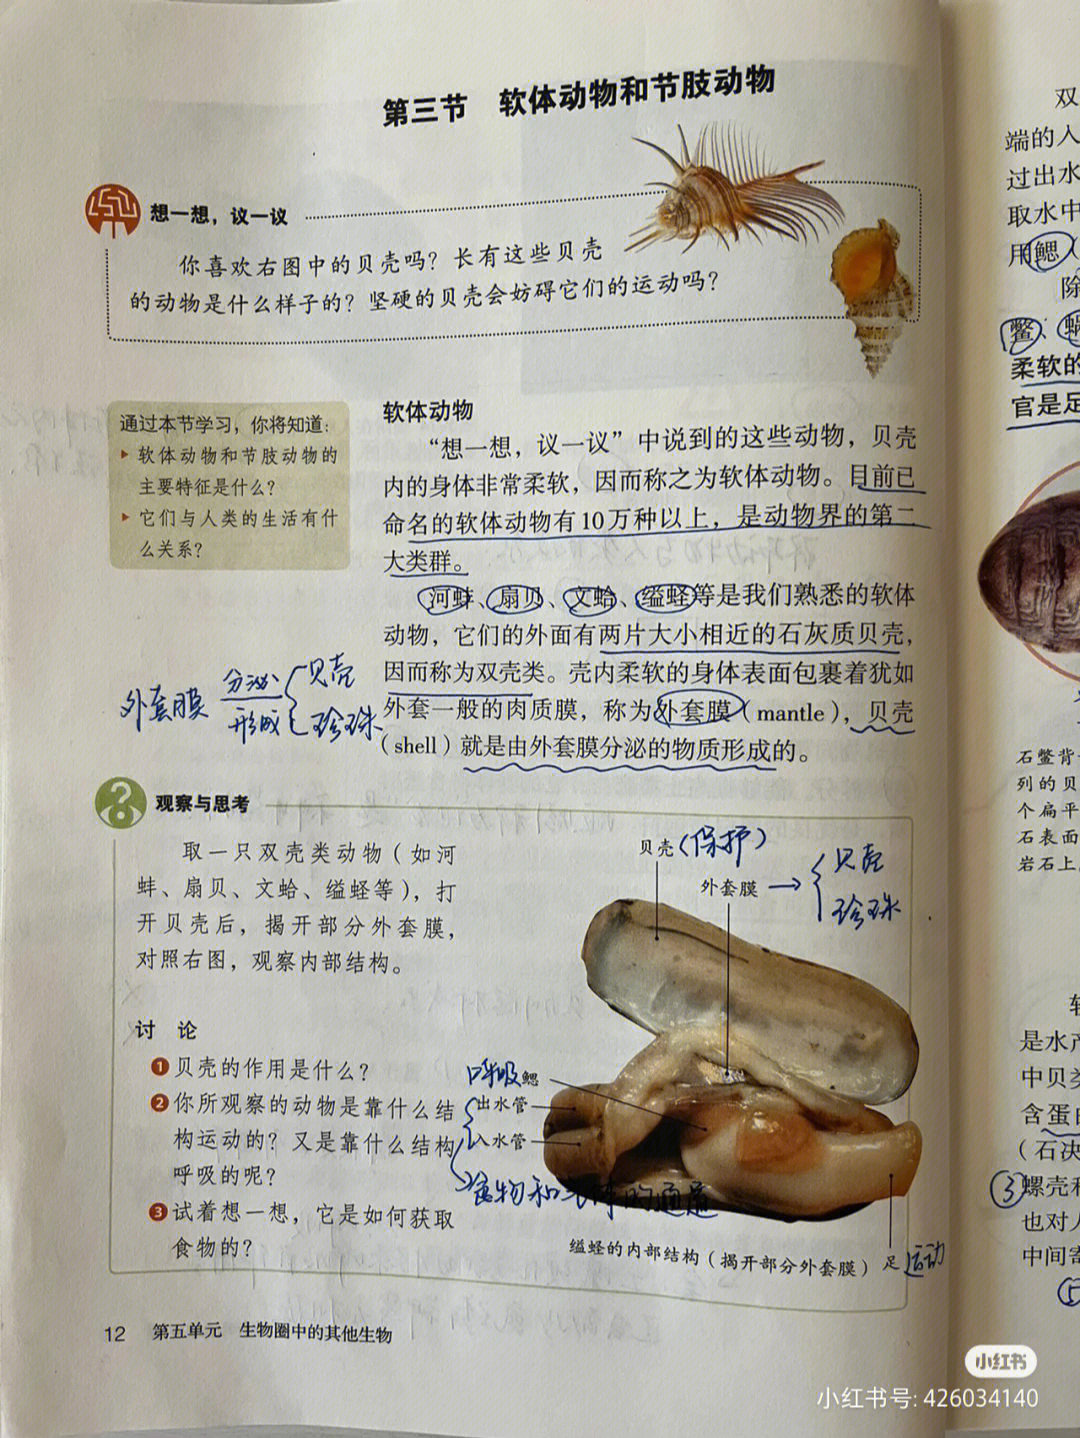 第三节 软体动物和节肢动物
想一想，议一议
你喜欢右图中的贝壳吗？长有这些贝壳
的动物是什么样子的？坚硬的贝壳会妨碍它们的运动吗？
通过本节学习，你将知道：
软体动物和节肢动物的
主要特征是什么？
它们与人类的生活有什
么关系？
软体动物
“想一想，议一议”中说到的这些动物，贝壳
内的身体非常柔软，因而称之为软体动物。目前已
命名的软体动物有10万种以上，是动物界的第二
大类群。
河蚌、扇贝、文蛤、缢蛏等是我们熟悉的软体
动物，它们的外面有两片大小相近的石灰质贝壳，
因而称为双壳类。壳内柔软的身体表面包裹着犹如
外套一般的肉质膜，称为外套膜（mantle），贝壳
（shell）就是由外套膜分泌的物质形成的。
外套膜 分泌 形成 贝壳 珍珠
观察与思考
取一只双壳类动物（如河
蚌、扇贝、文蛤、缢蛏等），打
开贝壳后，揭开部分外套膜，
对照右图，观察内部结构。
讨 论
1 贝壳的作用是什么？
2 你所观察的动物是靠什么结
构运动的？又是靠什么结构
呼吸的呢？
3 试着想一想，它是如何获取
食物的？
贝壳（保护）
外套膜→ 贝壳
珍珠
呼吸 鳃
出水管
入水管
食物和气体的通道
缢蛏的内部结构（揭开部分外套膜） 足 运动
12 第五单元 生物圈中的其他生物
双
端的人
过出水
取水中
用鳃（
除
鳖、蜗
柔软的
官是足
石鳖背
列的贝
个扁平
石表面
岩石上
软
是水产
中贝类
含蛋白
（石决
③螺壳和
也对人
中间寄
小红书
小红书号: 426034140